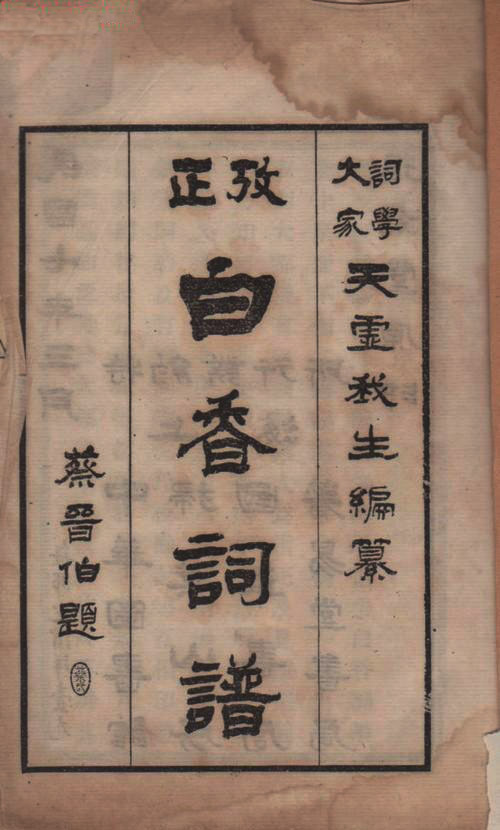 詞學大家天虛我生編纂
攷正白香詞譜
蔡晉伯題